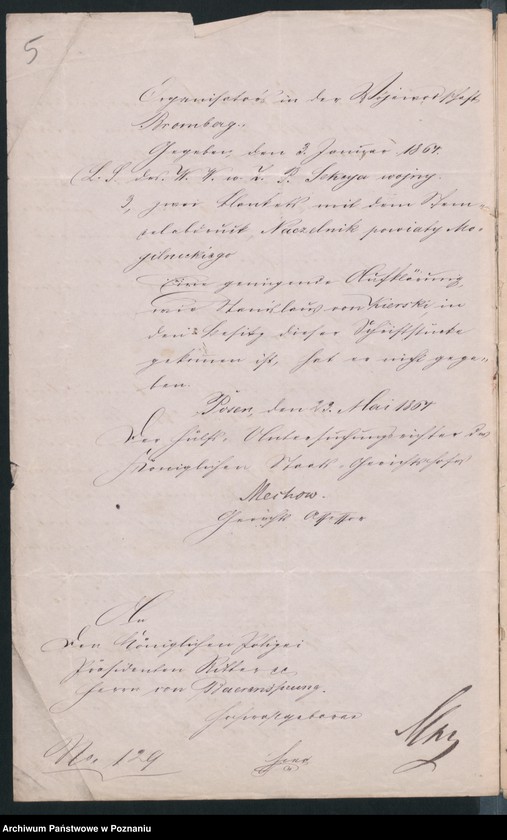 5
Organisators in der Wojewodschaft
Bromberg.
Gegeben, den 3. Januar 1864.
(L. S. des. W. V. w. Z. P. Sekcya wojny.
3, zwei Blankets mit dem Stem-
pelabdruck, Naczelnik powiaty Mo-
gilneckiego
Eine genügende Aufklärung,
wie Stanislaus von Kierski, in
den Besitz dieser Schriftstücke
gekommen ist, hat er nicht gege-
ben.
Posen, den 23. Mai 1864
Der Hülfs-Untersuchungsrichter des
Königlichen Staats-Gerichtshofes
Mechow.
Gerichts Assessor
An
Den Königlichen Polizei
Präsidenten Ritter cc
Herrn von Baerensprung.
Hochwohlgeboren
hier
No. 129
Archiwum Państwowe w Poznaniu